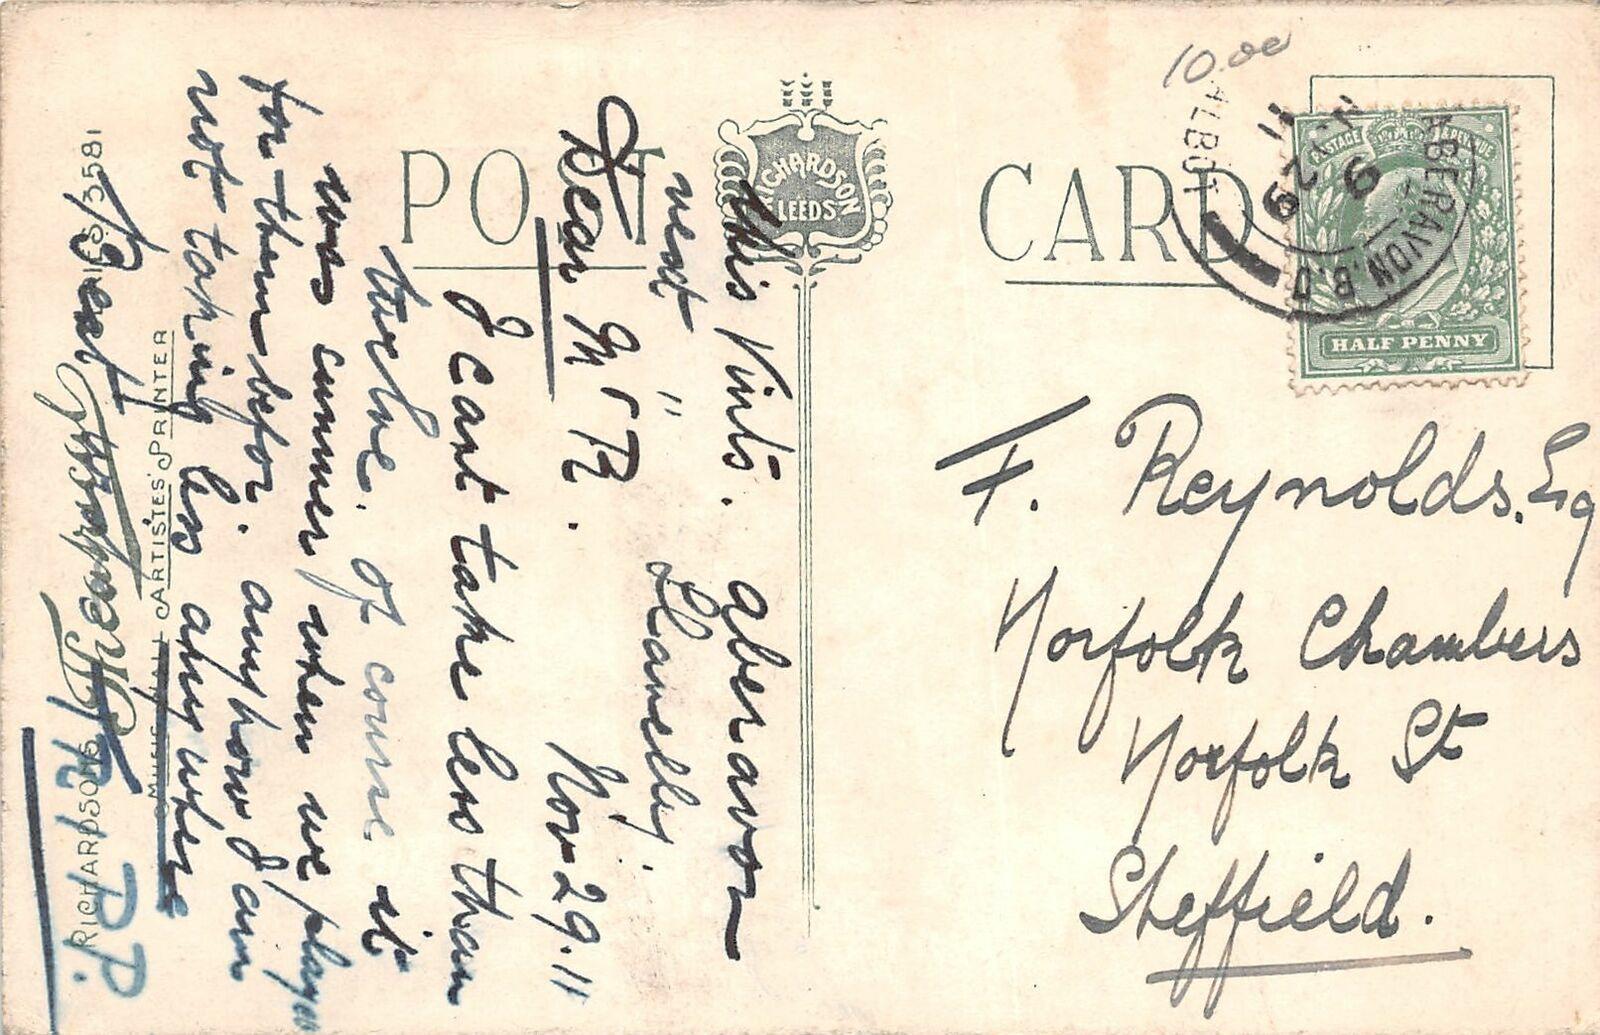 POST CARD
RICHARDSON
LEEDS
10.00
TALBOT
ABERAVON. B.O
9
N. 29
11
POSTAGE
HALF PENNY
F. Reynolds. Esq
Norfolk Chambers
Norfolk St
Sheffield.
this Vint's. Aberavon
next " Llanelly.
Dear Mr R. Nov 29. 11
I cant take less than
twelve. of course it
was cummer when we played
for them befor. any how I am
not taking less any where
Best
RICHARDSON'S Theatrical SERIES 3581
MUSIC HALL ARTISTES' PRINTER